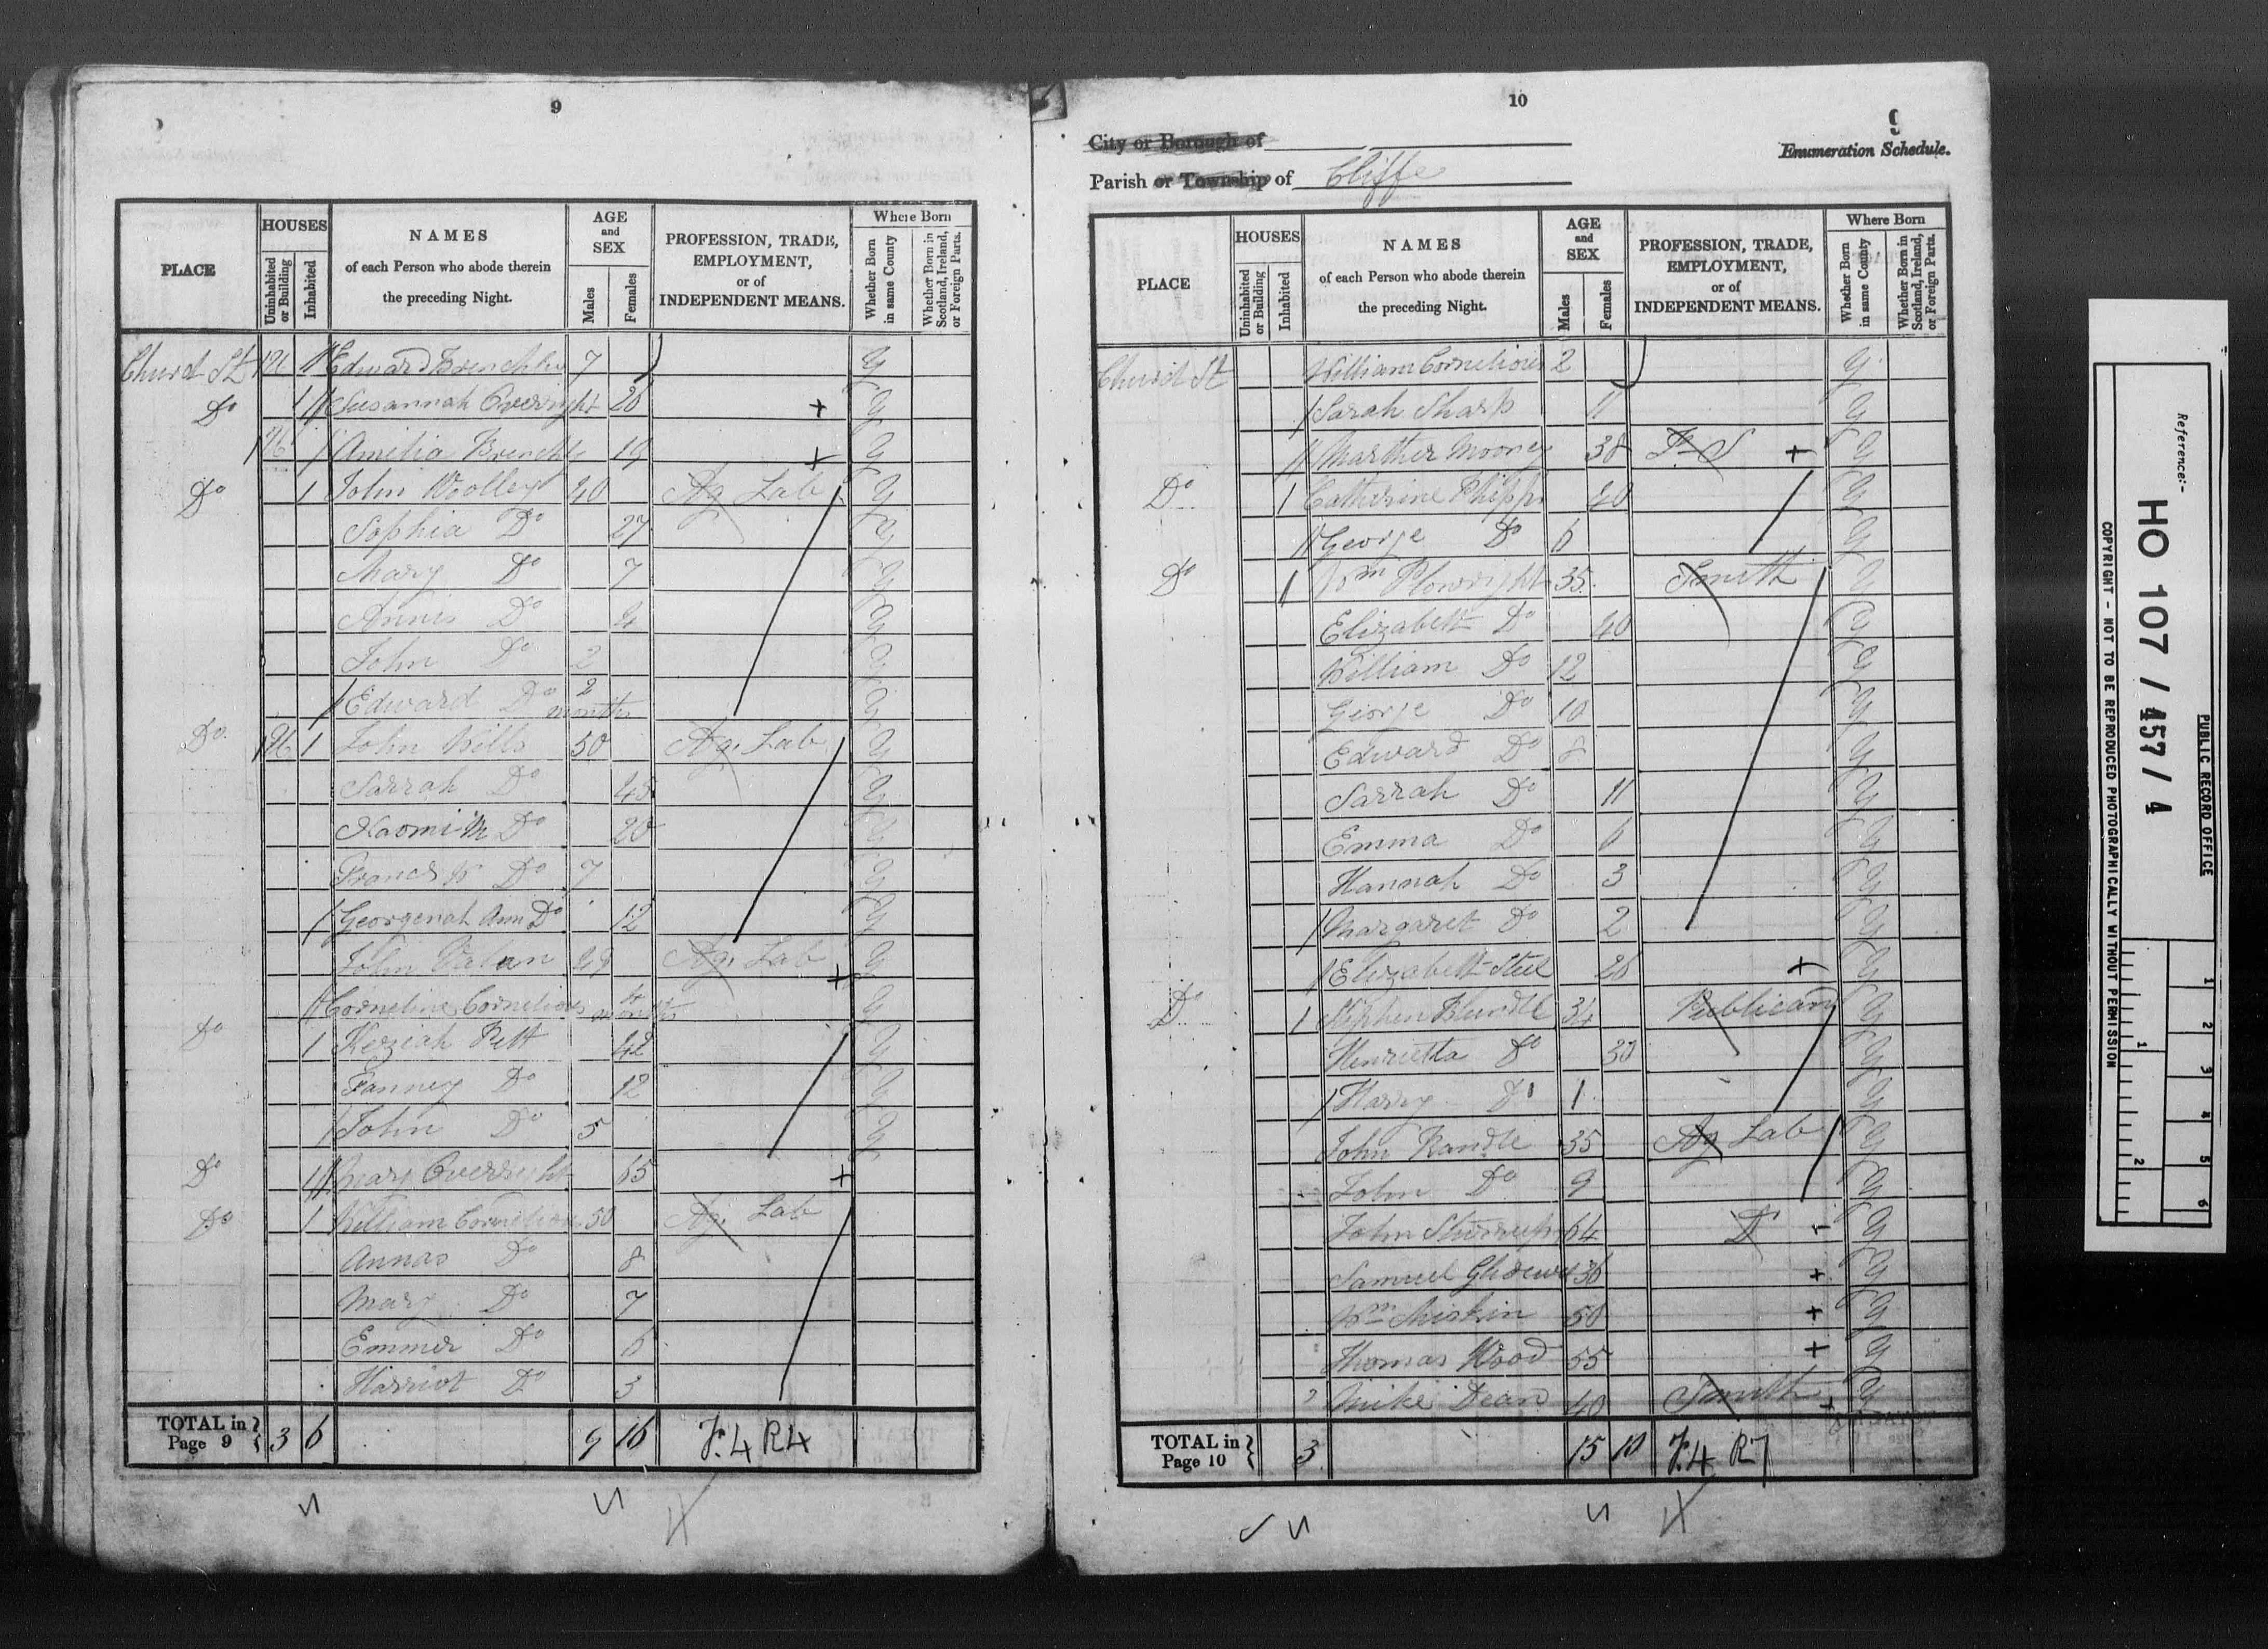 9
PLACE
HOUSES
Uninhabited or Building
Inhabited
NAMES
of each Person who abode therein
the preceding Night.
AGE
and
SEX
Males
Females
PROFESSION, TRADE,
EMPLOYMENT,
or of
INDEPENDENT MEANS.
Where Born
Whether Born in same County
Whether Born in Scotland, Ireland, or Foreign Parts.
Church St 1 Edward Brenchley 7 y
Do 1 Susannah Overright 26 y
Amelia Brenchly 19 y
Do 1 John Woolley 40 Ag. Lab y
Sophia Do 27 y
Mary Do 7 y
Annis Do 4 y
John Do 2 y
Edward Do 2 months y
Do 1 John Wills 50 Ag. Lab y
Sarrah Do 48 y
Naomi M Do 20 y
Francis W Do 7 y
Georgenah Ann Do 12 y
John 29 Ag. Lab y
Corneline Cornelious months y
Do 1 Keziah Pett 42 y
Fanney Do 12 y
John Do 5 y
Do 1 Mary Overright 65
Do 1 William Cornelious 50 Ag. Lab
Annas Do 8
Mary Do 7
Emmer Do 6
Harriot Do 3
TOTAL in Page 9 3 6 9 16 F.4 R4
10
9
City or Borough of
Enumeration Schedule.
Parish or Township of Cliffe
PLACE
HOUSES
Uninhabited or Building
Inhabited
NAMES
of each Person who abode therein
the preceding Night.
AGE
and
SEX
Males
Females
PROFESSION, TRADE,
EMPLOYMENT,
or of
INDEPENDENT MEANS.
Where Born
Whether Born in same County
Whether Born in Scotland, Ireland, or Foreign Parts.
Church St William Cornelious 2 y
Sarah Sharp 11 y
Marther Mooney 38 F S y
Do 1 Catherine Phipps 40 y
George Do 6 y
Do 1 Wm Plowright 35 Smith y
Elizabeth Do 40 y
William Do 12 y
George Do 10 y
Edward Do 8 y
Sarrah Do 11 y
Emma Do 6 y
Hannah Do 3 y
Margaret Do 2 y
Elizabeth Steel 26 y
Do 1 Stephen Blundle 34 Publican y
Henrietta Do 30 y
Harry Do 1 y
John Randle 35 Ag Lab y
John Do 9 y
John 64 D y
Samuel 36 y
Wm Miskin 50 y
Thomas Wood 55 y
Mike Dean 40 Smith y
TOTAL in Page 10 3 15 10 F.4 R7
Reference:-
HO 107 / 457 / 4
PUBLIC RECORD OFFICE
COPYRIGHT - NOT TO BE REPRODUCED PHOTOGRAPHICALLY WITHOUT PERMISSION
1
2
3
4
5
6
1
2